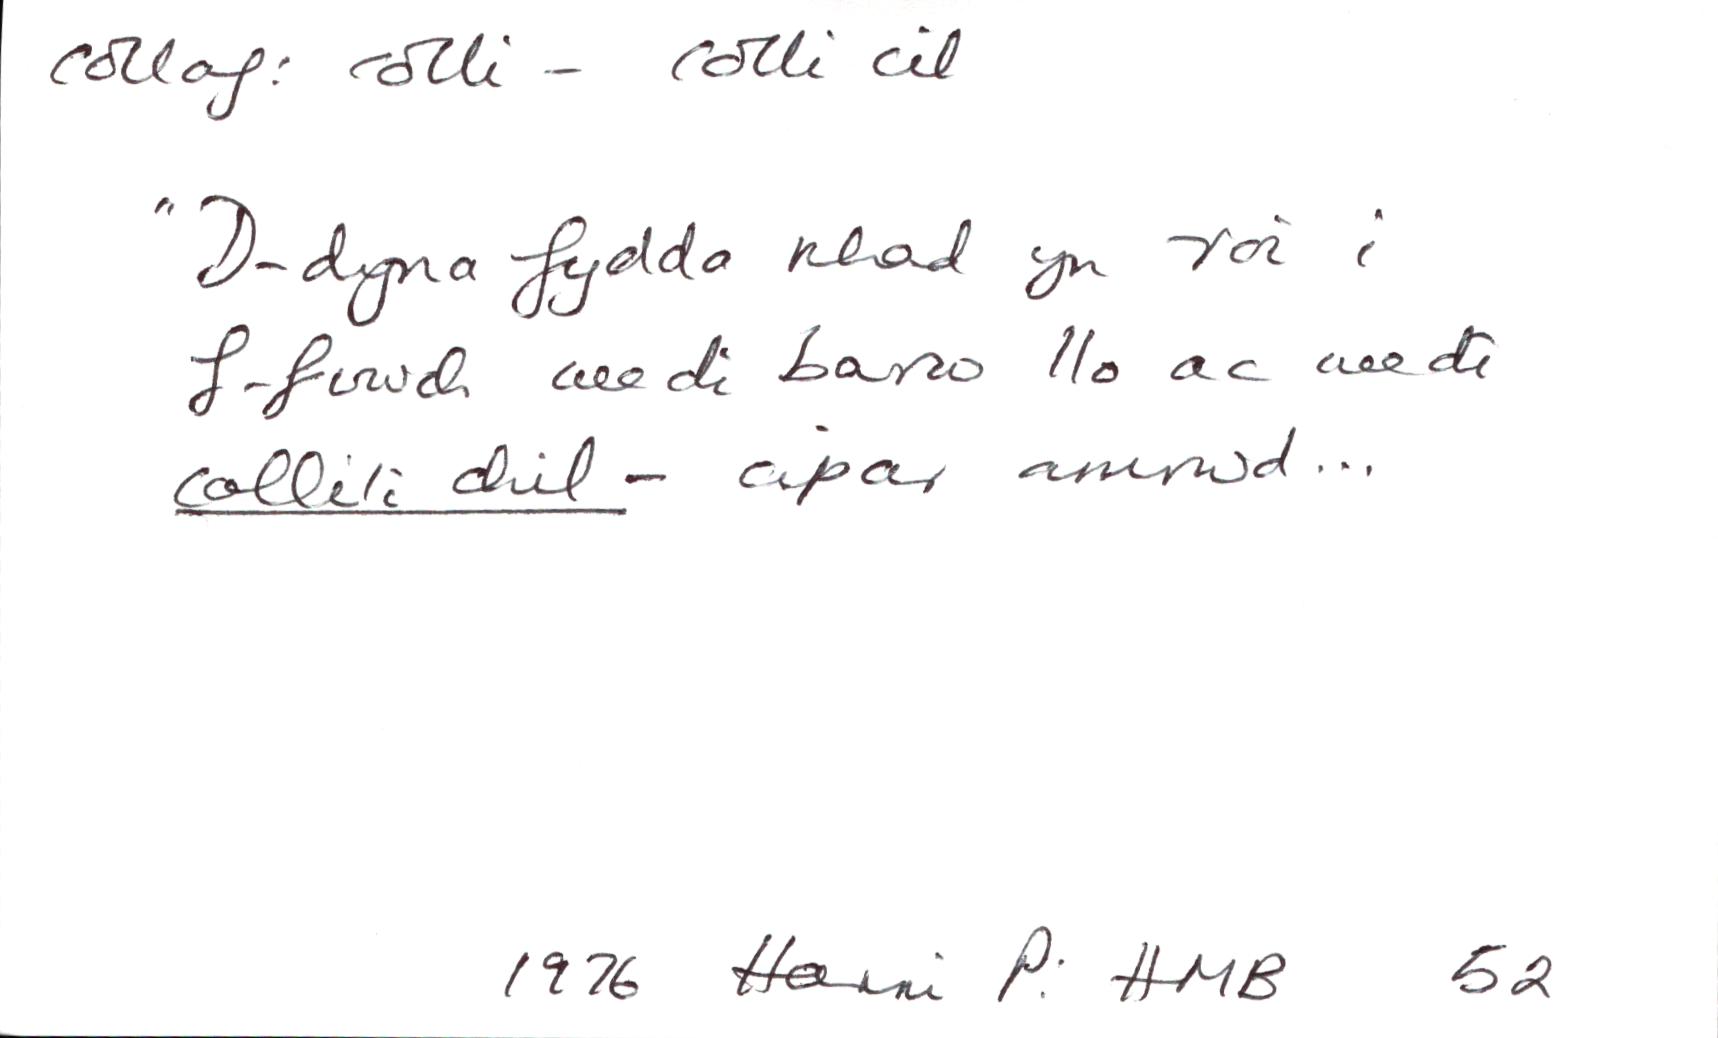 collaf: colli - colli cil
"D-dyna fydda nhad yn roi i
f-fuwch wedi barso llo ac wedi
colli'i chil - cipar amrwd...
1976 Harri P: HMB 52